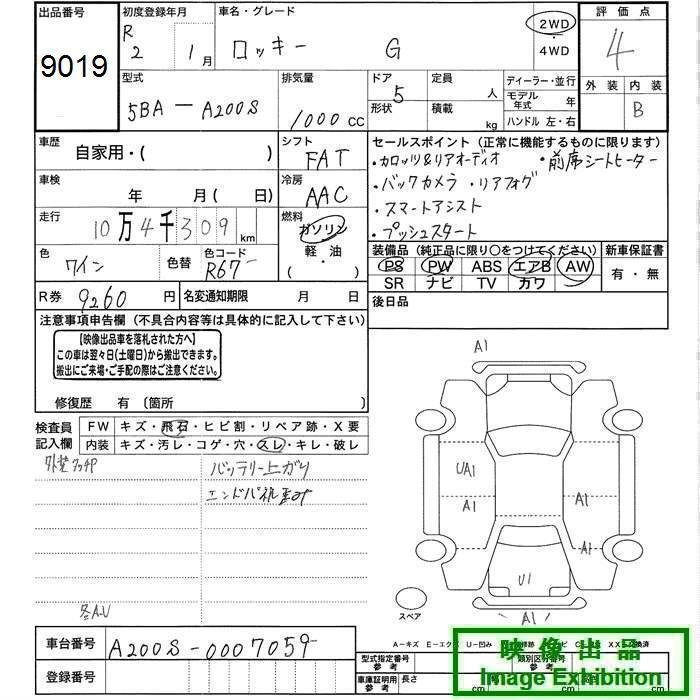 出品番号
9019
初度登録年月
R 2 1月
車名・グレード
ロッキー G
2WD・4WD
評価点
4
外装 内装
B
型式
5BA-A200S
排気量
1000 CC
ドア形状
5
定員 人
積載 kg
ディーラー・並行
モデル年式 年
ハンドル 左・右
車歴
自家用・( )
シフト
FAT
セールスポイント (正常に機能するものに限ります)
・カロッツ&リアオーディオ ・前席シートヒーター
・バックカメラ・リアフォグ
・スマートアシスト
・プッシュスタート
車検
年 月( 日)
冷房
AAC
走行
10万4千309km
燃料
ガソリン
軽・油
・( )
色
ワイン
色替
色コード
R67
装備品 (純正品に限り○をつけてください)
PS PW ABS エアB AW
SR ナビ TV カワ
新車保証書
有・無
R券 9260円
名変通知期限 月 日
後日品
注意事項申告欄 (不具合内容等は具体的に記入して下さい)
【映像出品車を落札された方へ】
この車は翌々日(土曜日)から搬出できます。
搬出にご来場・ご手配の際はご注意ください。
修復歴 有 〔箇所 〕
検査員記入欄
FW キズ・飛石・ヒビ割・リペア跡・X要
内装 キズ・汚レ・コゲ・穴・スレ・キレ・破レ
外装タッチP
バッテリー上がり
各A.U
A1
UA1
A1
A1
A1
U1
A1
スペア
車台番号
A200S-0007059
登録番号
A-キズ E-エクボ U-凹み
型式指定番号 参考
類別区分番号 参考
車庫証明用 参考
長さ cm
cm
cm
映像出品
Image Exhibition